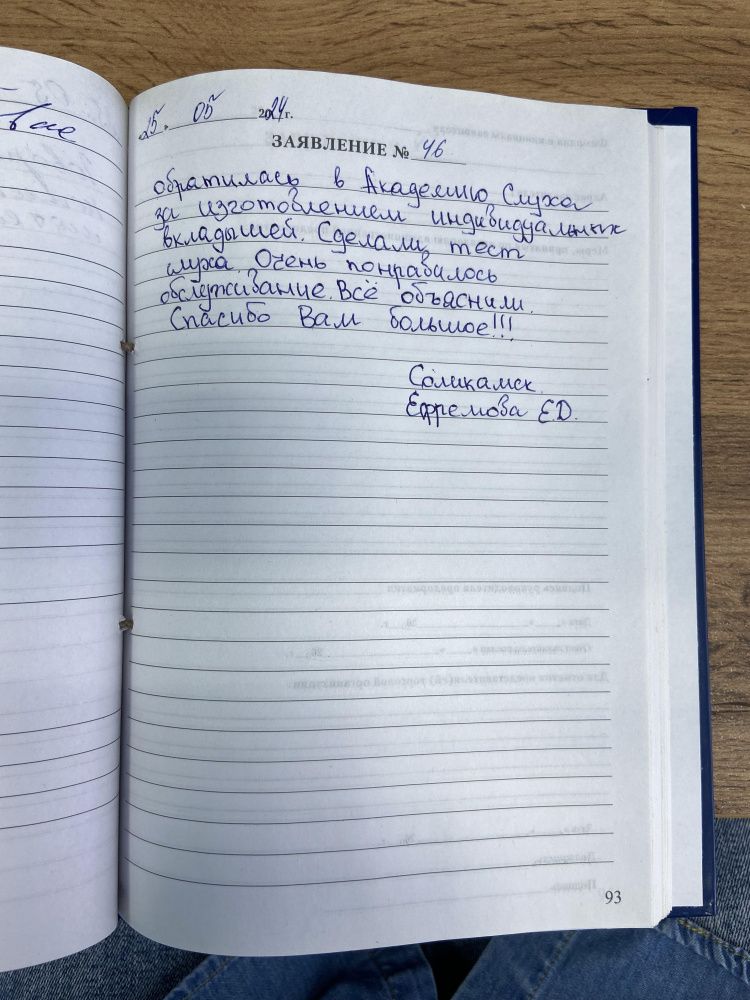 25. 05 2024 г.
ЗАЯВЛЕНИЕ № 46
обратилась в Академию Слуха
за изготовлением индивидуальных
вкладышей. Сделали тест
слуха. Очень понравилось
обслуживание. Всё объяснили.
Спасибо Вам большое!!!
Соликамск.
Ефремова Е.Д.
93